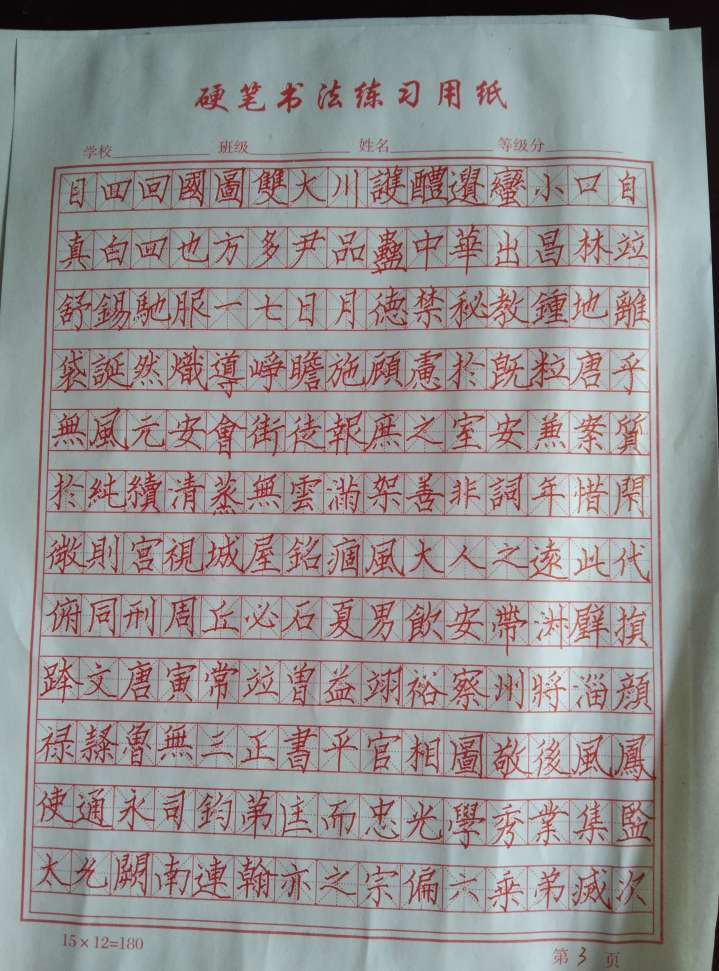 硬笔书法练习用纸
学校 班级 姓名 等级分
目四回國圖雙大川護醴變蠻小口自
真白四也方多尹品蠱中華出昌林竝
舒錫馳服一七日月德禁秘教鍾地離
袋誕然熾導崢瞻施顧慮於既粒唐乎
無風元安會街徒報庶之室安兼案質
於純續清蒸無雲滿架善非詞年惜閑
微則宮視城屋銘痼風大人之遠此代
俯同刑周丘必石夏男飲安帶淋壁
文唐寅常竝曾益翊裕察州將淄顏
禄隸魯無三正書平官相圖敬後風鳳
使通永司鈞苐匡而忠光學秀業集監
太允闕南連翰亦之宗偏六乘弟滅次
15×12=180
第3页